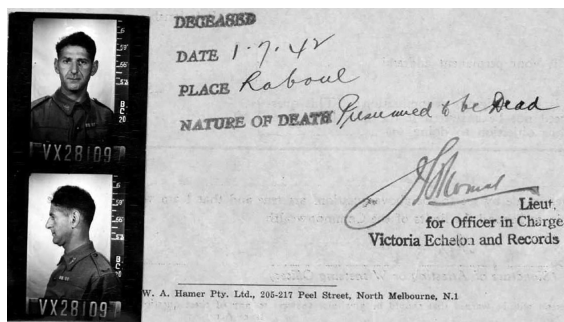 DECEASED
DATE 1.7.42
PLACE Rabaul
NATURE OF DEATH Presumed to be Dead
VX28109
Lieut.
for Officer in Charge
Victoria Echelon and Records
VX28109
W. A. Hamer Pty. Ltd., 205-217 Peel Street, North Melbourne, N.1